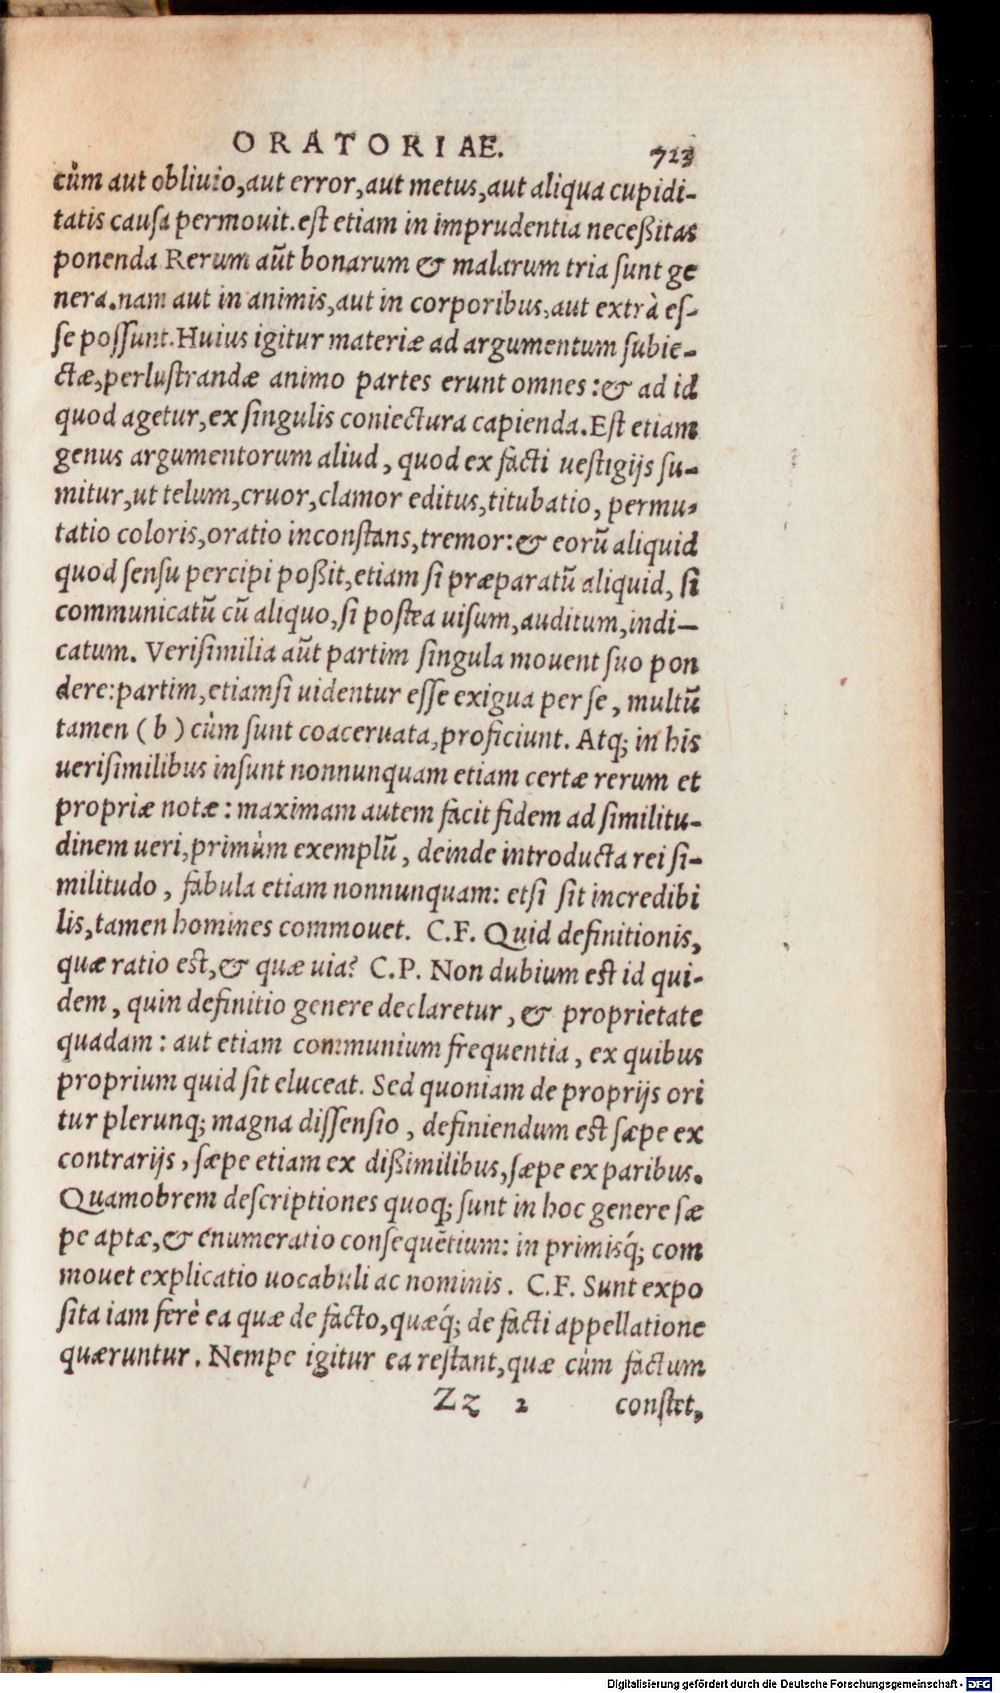 ORATORIAE. 723
cùm aut obliuio, aut error, aut metus, aut aliqua cupidi-
tatis causa permouit. est etiam in imprudentia neceßitas
ponenda Rerum aũt bonarum & malarum tria sunt ge
nera. nam aut in animis, aut in corporibus, aut extrà es-
se possunt. Huius igitur materiæ ad argumentum subie-
ctæ, perlustrandæ animo partes erunt omnes: & ad id
quod agetur, ex singulis coniectura capienda. Est etiam
genus argumentorum aliud, quod ex facti uestigijs su-
mitur, ut telum, cruor, clamor editus, titubatio, permu-
tatio coloris, oratio inconstans, tremor: & eorũ aliquid
quod sensu percipi poßit, etiam si præparatũ aliquid, si
communicatũ cũ aliquo, si postea uisum, auditum, indi-
catum. Verisimilia aũt partim singula mouent suo pon
dere: partim, etiamsi uidentur esse exigua per se, multũ
tamen (b) cùm sunt coaceruata, proficiunt. Atq; in his
uerisimilibus insunt nonnunquam etiam certæ rerum et
propriæ notæ: maximam autem facit fidem ad similitu-
dinem ueri, primùm exemplũ, deinde introducta rei si-
militudo, fabula etiam nonnunquam: etsi sit incredibi
lis, tamen homines commouet. C.F. Quid definitionis,
quæ ratio est, & quæ uia? C.P. Non dubium est id qui-
dem, quin definitio genere declaretur, & proprietate
quadam: aut etiam communium frequentia, ex quibus
proprium quid sit eluceat. Sed quoniam de proprijs ori
tur plerunq; magna dissensio, definiendum est sæpe ex
contrarijs, sæpe etiam ex dißimilibus, sæpe ex paribus.
Quamobrem descriptiones quoq; sunt in hoc genere sæ
pe aptæ, & enumeratio consequẽtium: in primisq́; com
mouet explicatio uocabuli ac nominis. C.F. Sunt expo
sita iam ferè ea quæ de facto, quæq́; de facti appellatione
quæruntur. Nempe igitur ea restant, quæ cùm factum
Zz 2 constet,
Digitalisierung gefördert durch die Deutsche Forschungsgemeinschaft - DFG